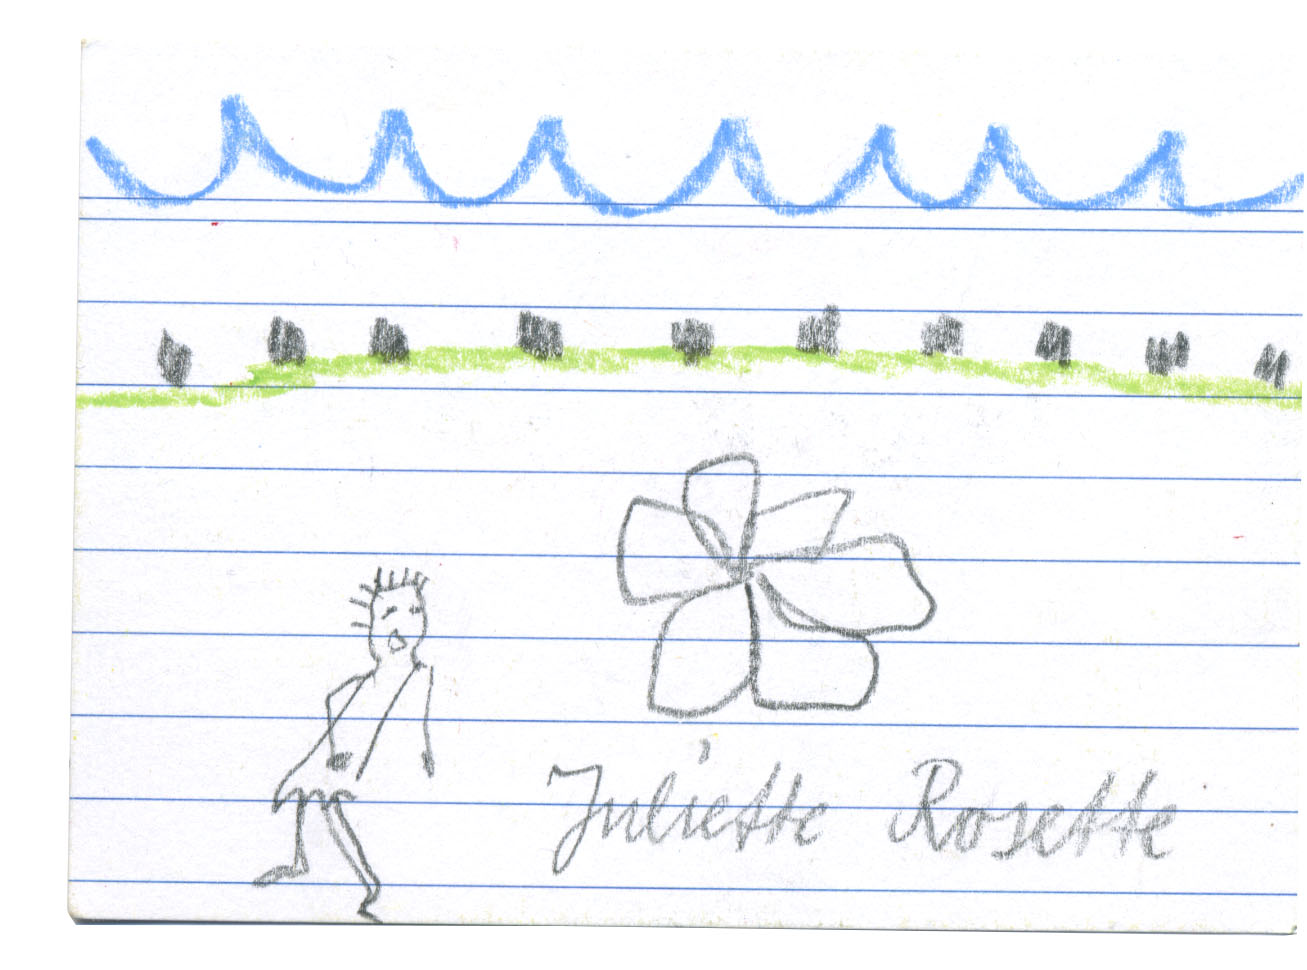 Juliette Rosette